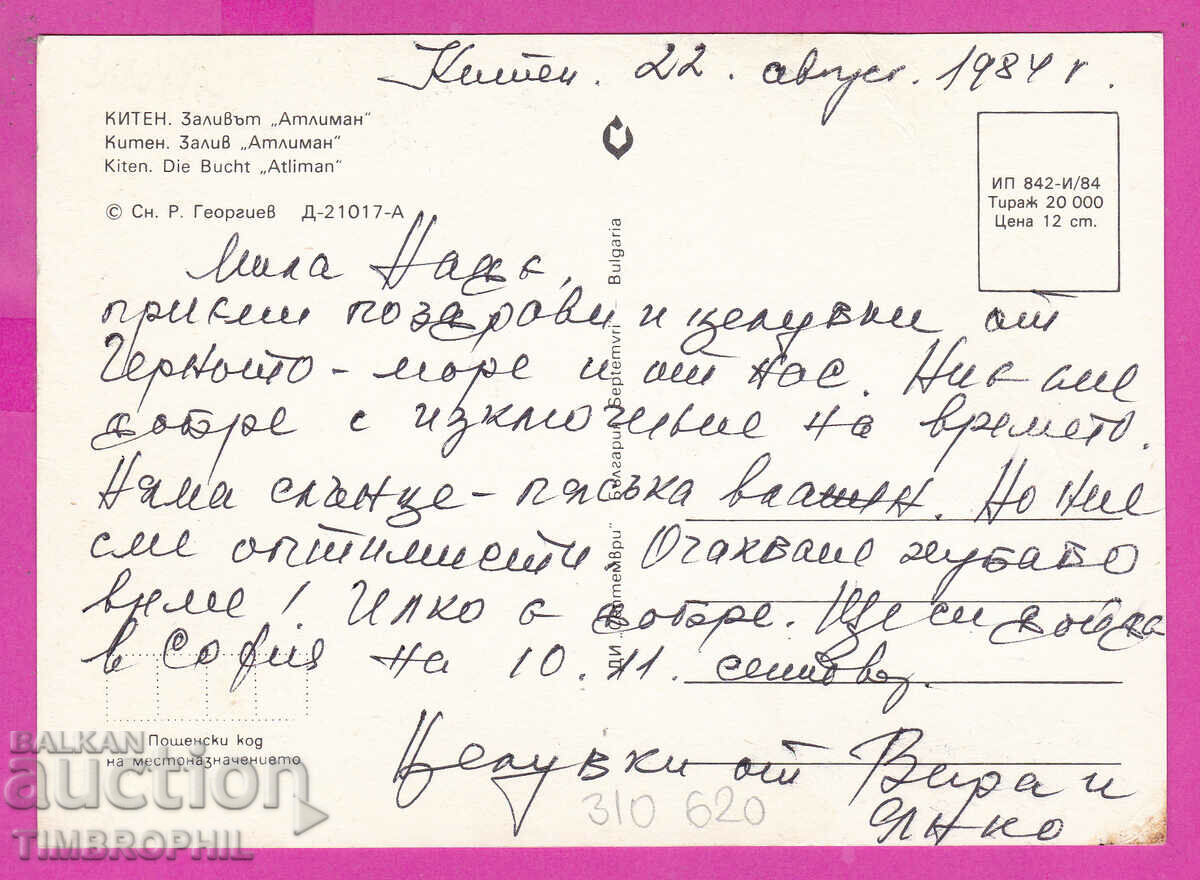 Китен. 22. август. 1984 г.
КИТЕН. Заливът „Атлиман"
Китен. Залив „Атлиман"
Kiten. Die Bucht „Atliman"
© Сн. Р. Георгиев Д-21017-А
ИП 842-И/84
Тираж 20 000
Цена 12 ст.
ДИ „Септември" България Septemvri Bulgaria
Мила Надя,
приеми поздрави и целувки от
Черното-море и от нас. Ние сме
добре с изключение на времето.
Няма слънце-пясъка влажен. Но ние
сме оптимисти Очакваме хубаво
време! Илко е добре. Ще си дойда
в София на 10.11. септемв.
Целувки от Вера и
Янко
Пощенски код
на местоназначението
310 620
BALKAN
auction
TIMBROPHIL